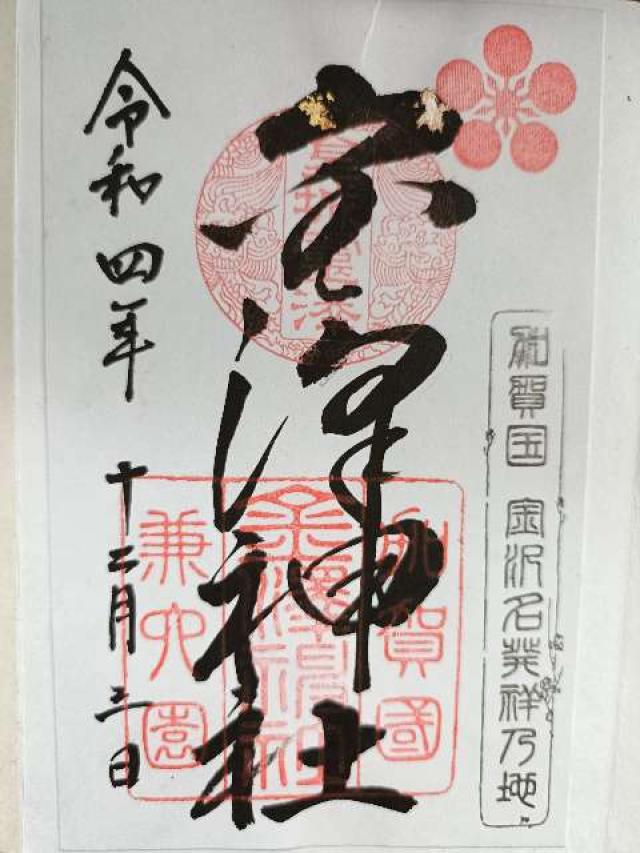 加賀国 金沢名発祥乃地
金澤神社
加賀國
金澤神社
兼六園
令和四年 十二月 三日